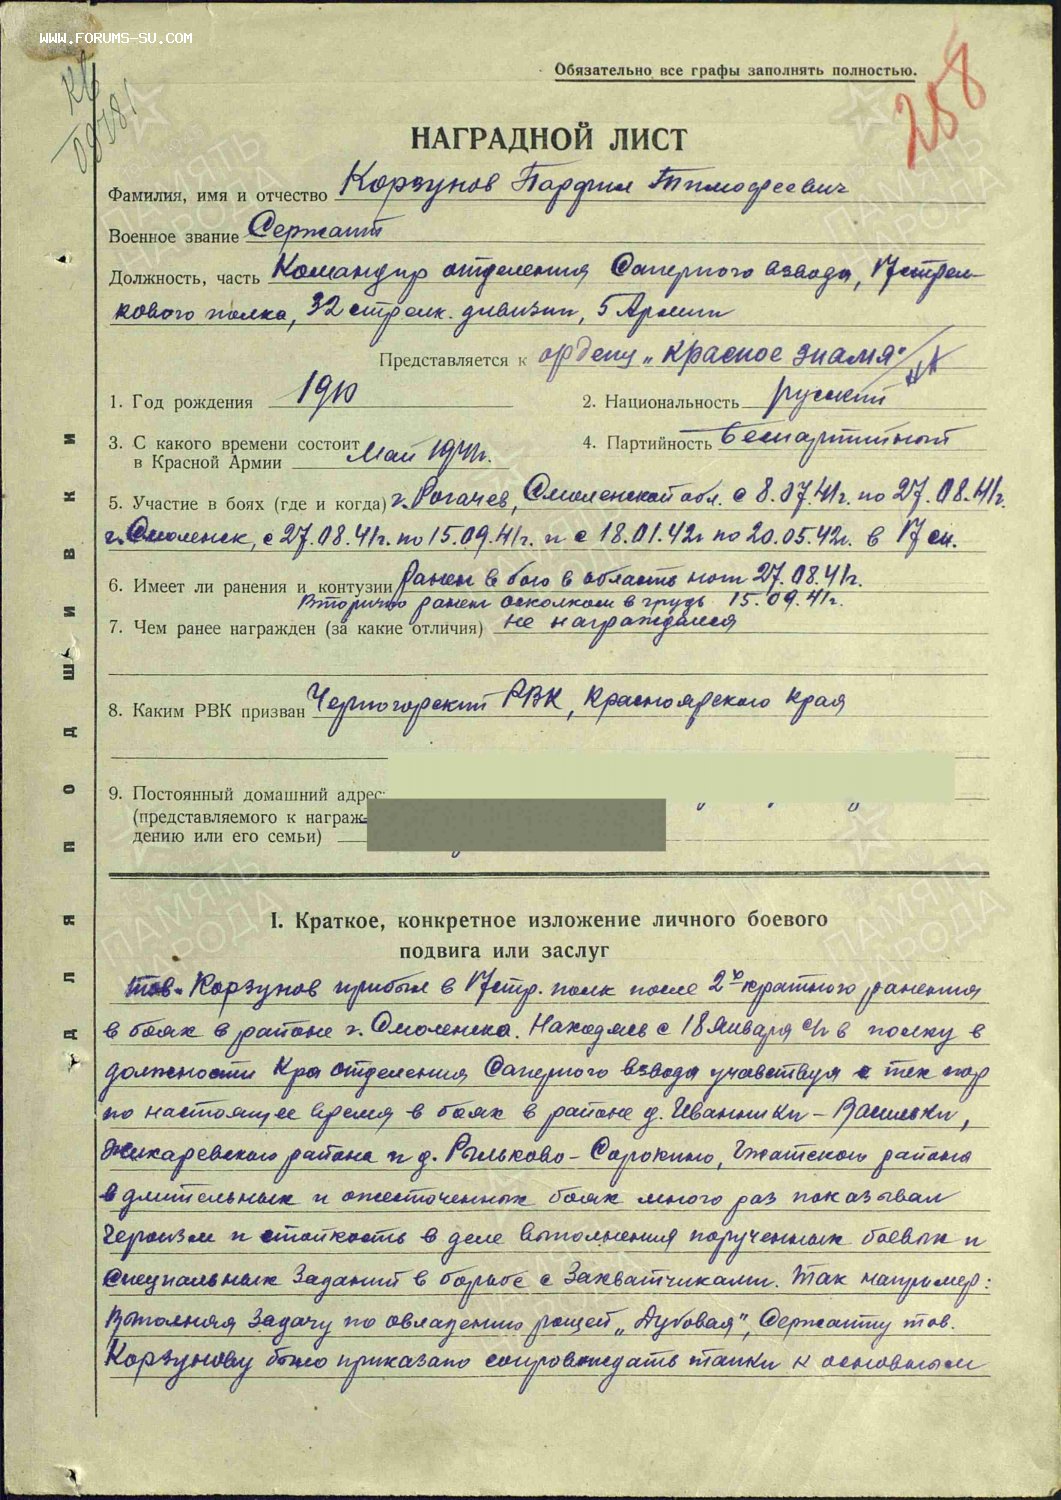 WWW.FORUMS-SU.COM
Обязательно все графы заполнять полностью.
258
НАГРАДНОЙ ЛИСТ
Фамилия, имя и отчество Корзунов Парфил Тимофеевич
Военное звание Сержант
Должность, часть Командир отделения Саперного взвода, 17 стрел-
кового полка, 32 стрелк. дивизии, 5 Армии
Представляется к ордену „Красное знамя"
1. Год рождения 1910
2. Национальность русский
3. С какого времени состоит
в Красной Армии май 1941г.
4. Партийность беспартийный
5. Участие в боях (где и когда) г. Рогачев, Смоленской обл. с 8.07.41г. по 27.08.41г.
г. Смоленск, с 27.08.41г. по 15.09.41г. и с 18.01.42г по 20.05.42г. в 17 сп.
6. Имеет ли ранения и контузии Ранен в бою в область ног 27.08.41г.
Вторично ранен осколком в грудь 15.09.41г.
7. Чем ранее награжден (за какие отличия) не награждался
8. Каким РВК призван Черногорский РВК, Красноярского Края
9. Постоянный домашний адрес:
(представляемого к награж-
дению или его семьи)
Для подшивки
I. Краткое, конкретное изложение личного боевого
подвига или заслуг
тов. Корзунов прибыл в 17 стр. полк после 2х кратного ранения
в боях в районе г. Смоленска. Находясь с 18 января с/г в полку в
должности К-ра отделения Саперного взвода учавствуя с тех пор
по настоящее время в боях в районе д. Иванники – Васильки,
района и д. Рыльково – Сорокино, Гжатского района
в длительных и ожесточенных боях много раз показывал
героизм и стойкость в деле выполнения порученных боевых и
Специальных Заданий в борьбе с Захватчиками. Так например:
Выполняя Задачу по овладению рощей „Дубовая", Сержанту тов.
Корзунову было приказано сопровождать танки к основным